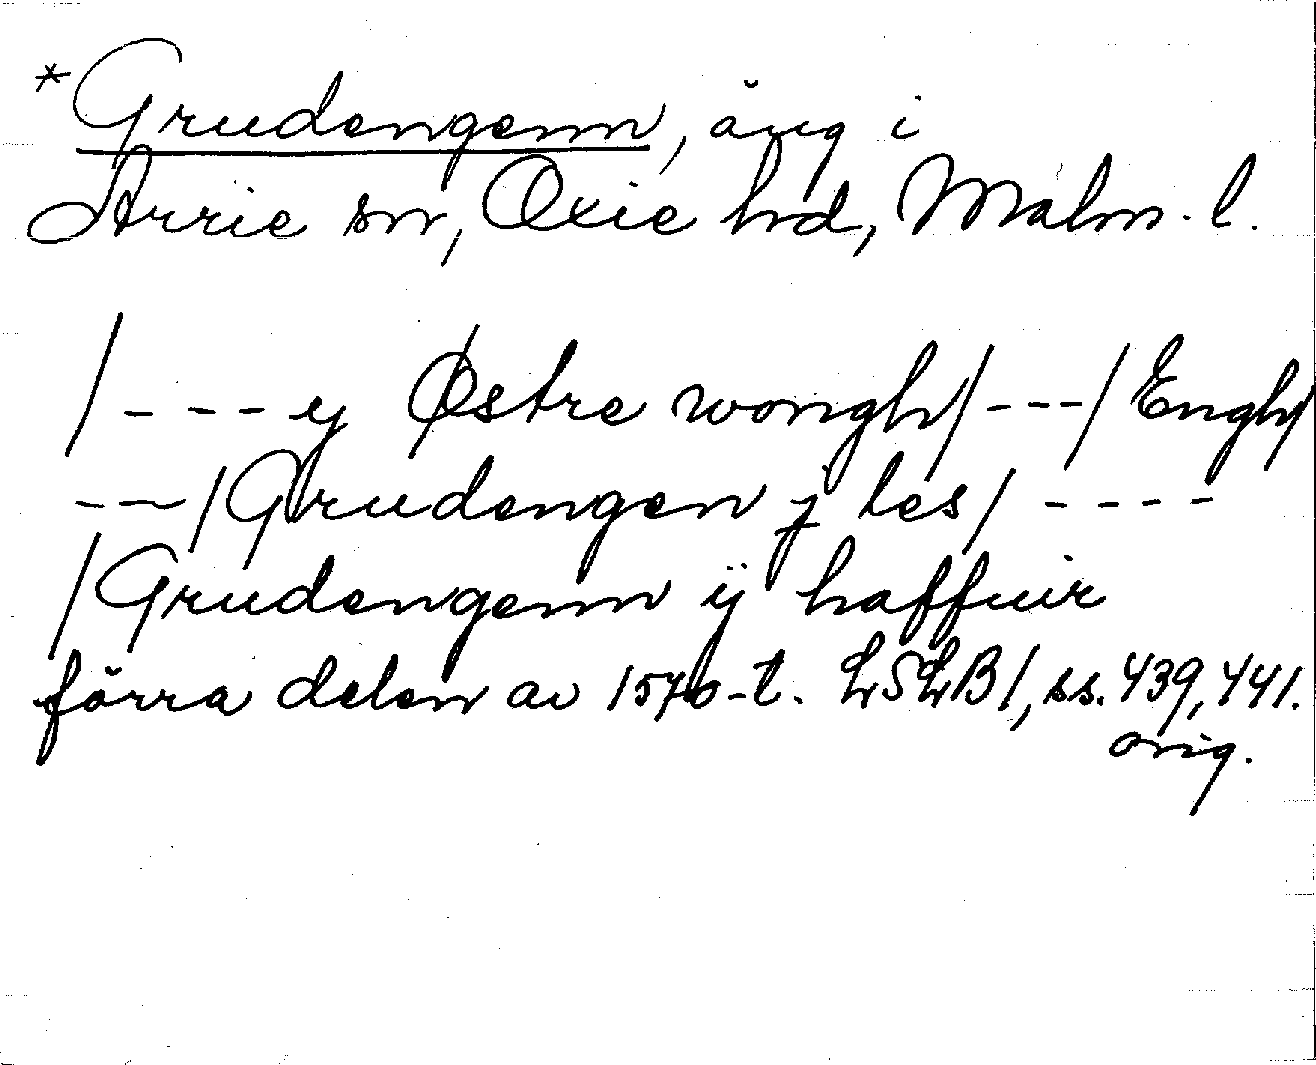 *Grudengenn, äng i
Arrie sn, Oxie hd, Malm. l.
/---ij Østre wongh/---/Engh/
---/Grudengen j les/----
/Grudengenn ÿ haffuir
förra delen av 1570-t. LSLB1, ss. 439, 441.
orig.